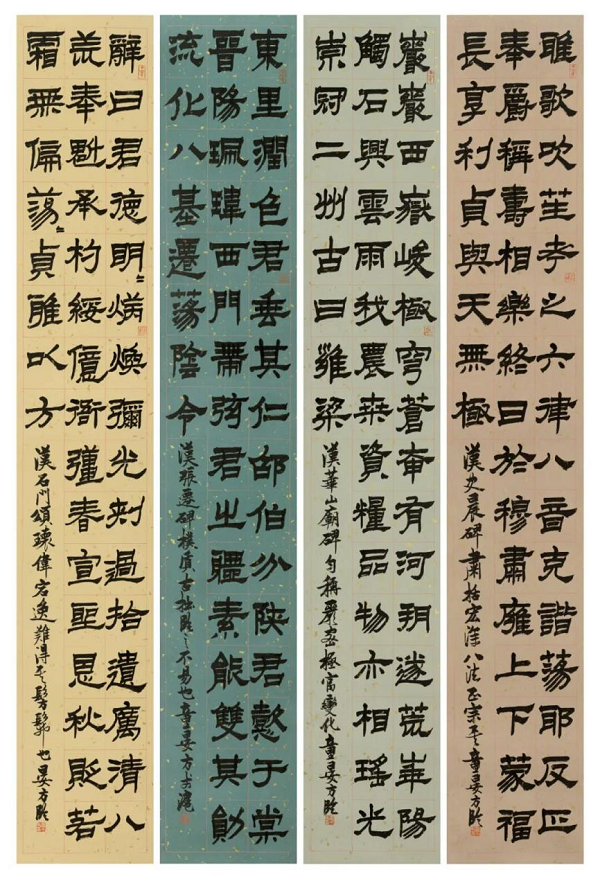 雎歌吹笙考之六律八音克諧蕩耶反正
奉爵稱壽相樂終日於穆肅廱上下蒙福
長享利貞與天無極
漢史晨碑肅括宏深八法正宗也童晏方臨
巖巖西嶽峻極穹蒼奄有河朔遂荒崋陽
觸石興雲雨我農桑資糧品物亦相瑤光
崇冠二州古曰雍梁
漢華山廟碑勻稱嚴密極富變化童晏方臨
東里潤色君垂其仁邵伯分陝君懿于棠
晉陽珮瑋西門帶弦君之體素能雙其勛
流化八基遷蕩陰令
漢張遷碑樸質古拙臨之不易也童晏方於滬
辭曰君德明〻炳煥彌光刺過拾遺厲清八
荒奉魁承杓綏億衙彊春宣聖恩秋貶若
霜無偏蕩〻貞雅以方
漢石門頌瑰偉宕逸難得其髣髴也晏方臨